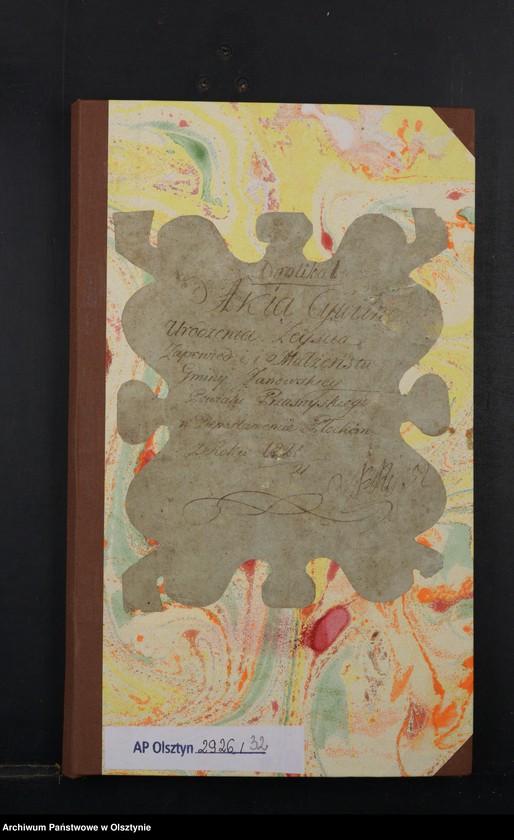 Duplikat
Akta Cywilne
Urodzenia Zeyścia
Zapowiedzi i Małżeństw
Gminy Janowskiey
Powiatu Przasnyskiego
w Departamencie Płockim
z Roku 18
AP Olsztyn 2926 / 32
Archiwum Państwowe w Olsztynie